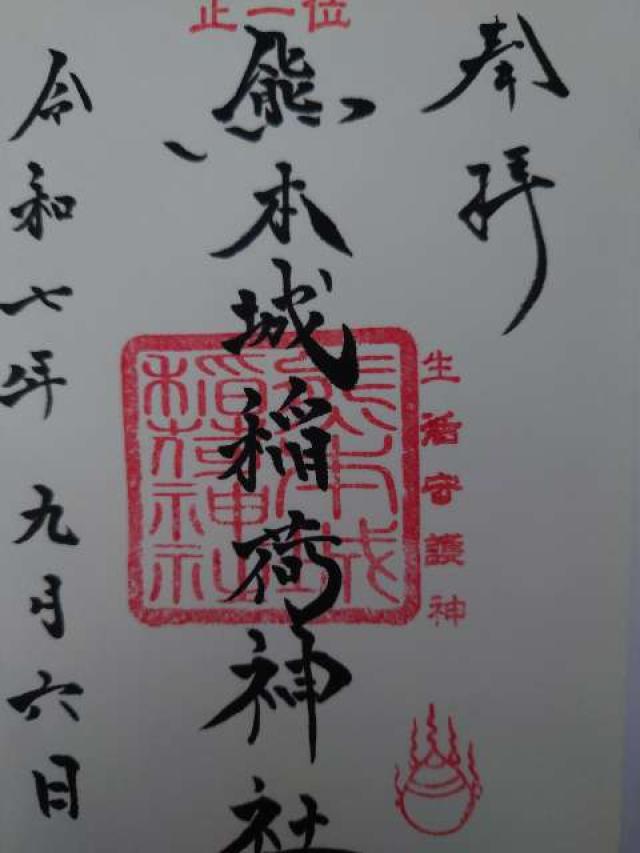 奉拝
生活守護神
正一位
熊本城稲荷神社
熊本城
稲荷神社
令和七年九月六日